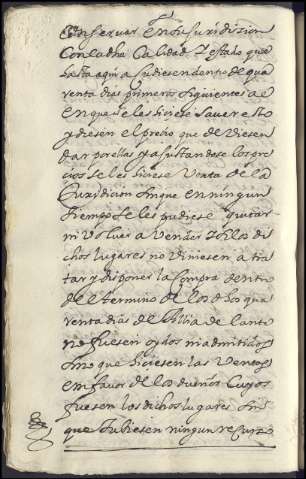 Conseruar En su Juridizion
Con la dha Calidad y estado que
hasta aqui acudiesen dentro de qua
renta dias primeros siguientes al
En que se les hiciese Sauer esto
y diesen el precio que deuiesen
dar por ellas y ajustandose los pre
cios se les hiciese Venta de la
Jurisdicion sin que en ningun
tiempo se les pudiese quitar
ni Voluer a Vender y si los di
chos lugares no viniesen a tra
tar y disponer la Compra dentro
del termino de los dhos qua
renta dias de alli adelante
no fuesen oydos ni admitidos
sino que hiciesen las Ventas
en fauor de los dueños Cuyos
fuesen los dichos lugares sin
que tubiesen ningun recurso